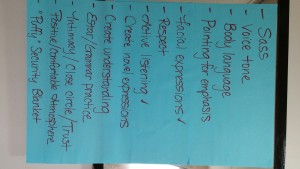 - Sass
- Voice tone
- Body language
- Pointing for emphasis
- Facial expressions ✓
- Respect
- Active listening ✓
- Create novel expressions
- Create understanding
- Estar/Grammar practice
- Intimacy/Close circle/Trust
- Positive/Comfortable Atmosphere
- "Puffy" Security Blanket